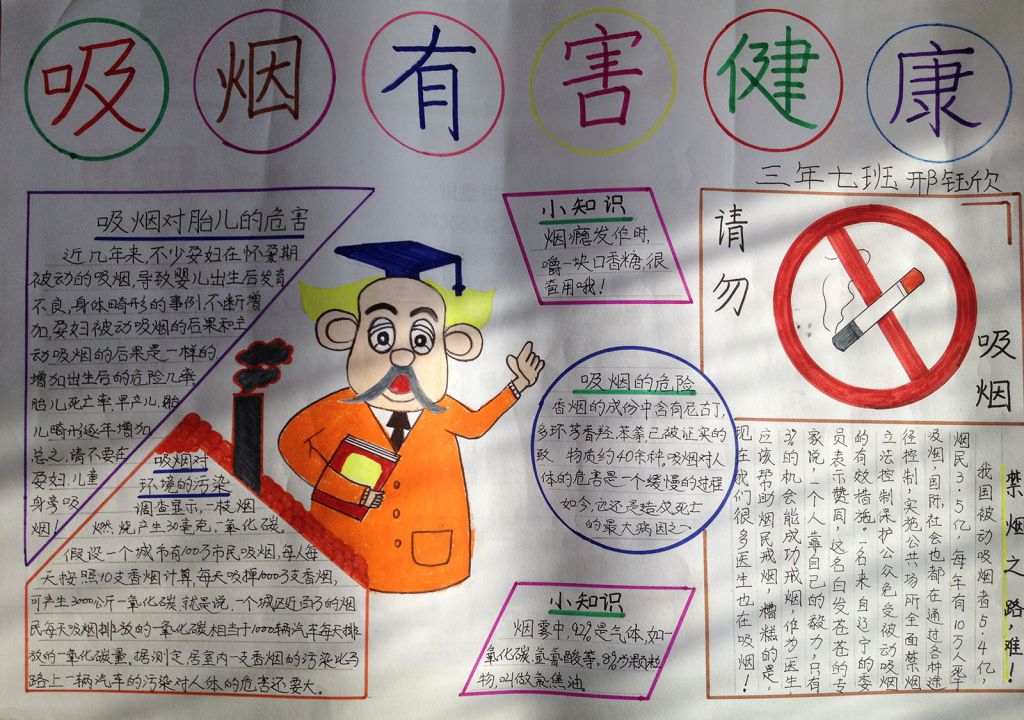 吸烟有害健康
三年七班 邢钰欣
吸烟对胎儿的危害
近几年来,不少孕妇在怀孕期
被动的吸烟,导致婴儿出生后发育
不良,身体畸形的事例,不断增
加,孕妇被动吸烟的后果和主
动吸烟的后果是一样的
增加出生后的危险几率
胎儿死亡率.早产儿.胎
儿畸形逐年增加
总之,请不要在
孕妇.儿童
身旁吸
烟!
吸烟对
环境的污染
调查显示,一枝烟
燃烧,产生30毫克,一氧化碳.
假设一个城市有100万市民吸烟,每人每
天按照10支香烟计算,每天吸掉1000万支香烟,
可产生3000公斤一氧化碳.就是说,一个城区近百万的烟
民每天吸烟排放的一氧化碳相当于1000辆汽车每天排
放的一氧化碳量.据测定,居室内一支香烟的污染比马
路上一辆汽车的污染对人体的危害还要大.
小知识
烟瘾发作时,
嚼一块口香糖,很
管用哦!
吸烟的危险
香烟的成份中含有尼古丁,
多环芳香烃,苯等,已被证实的
致 物质约40余种.吸烟对人
体的危害是一个缓慢的过程
如今,它还是造成死亡
的最大病因之一
小知识
烟雾中,92%是气体,如一
氧化碳.氢氰酸等,8%为颗粒
物,叫做烹焦油.
请勿
吸烟
禁烟之路,难!
我国被动吸烟者5.4亿,
烟民3.5亿,每年有10万人死于
吸烟,国际社会也都在通过各种途
径控制,实施公共场所全面禁烟
立法控制保护公众免受被动吸烟
的有效措施.一名来自辽宁的委
员表示赞同,这名白发苍苍的专
家说,一个人靠自己的毅力,只有
3%的机会能成功戒烟,作为医生
应该帮助烟民戒烟,糟糕的是,
现在我们很多医生也在吸烟!